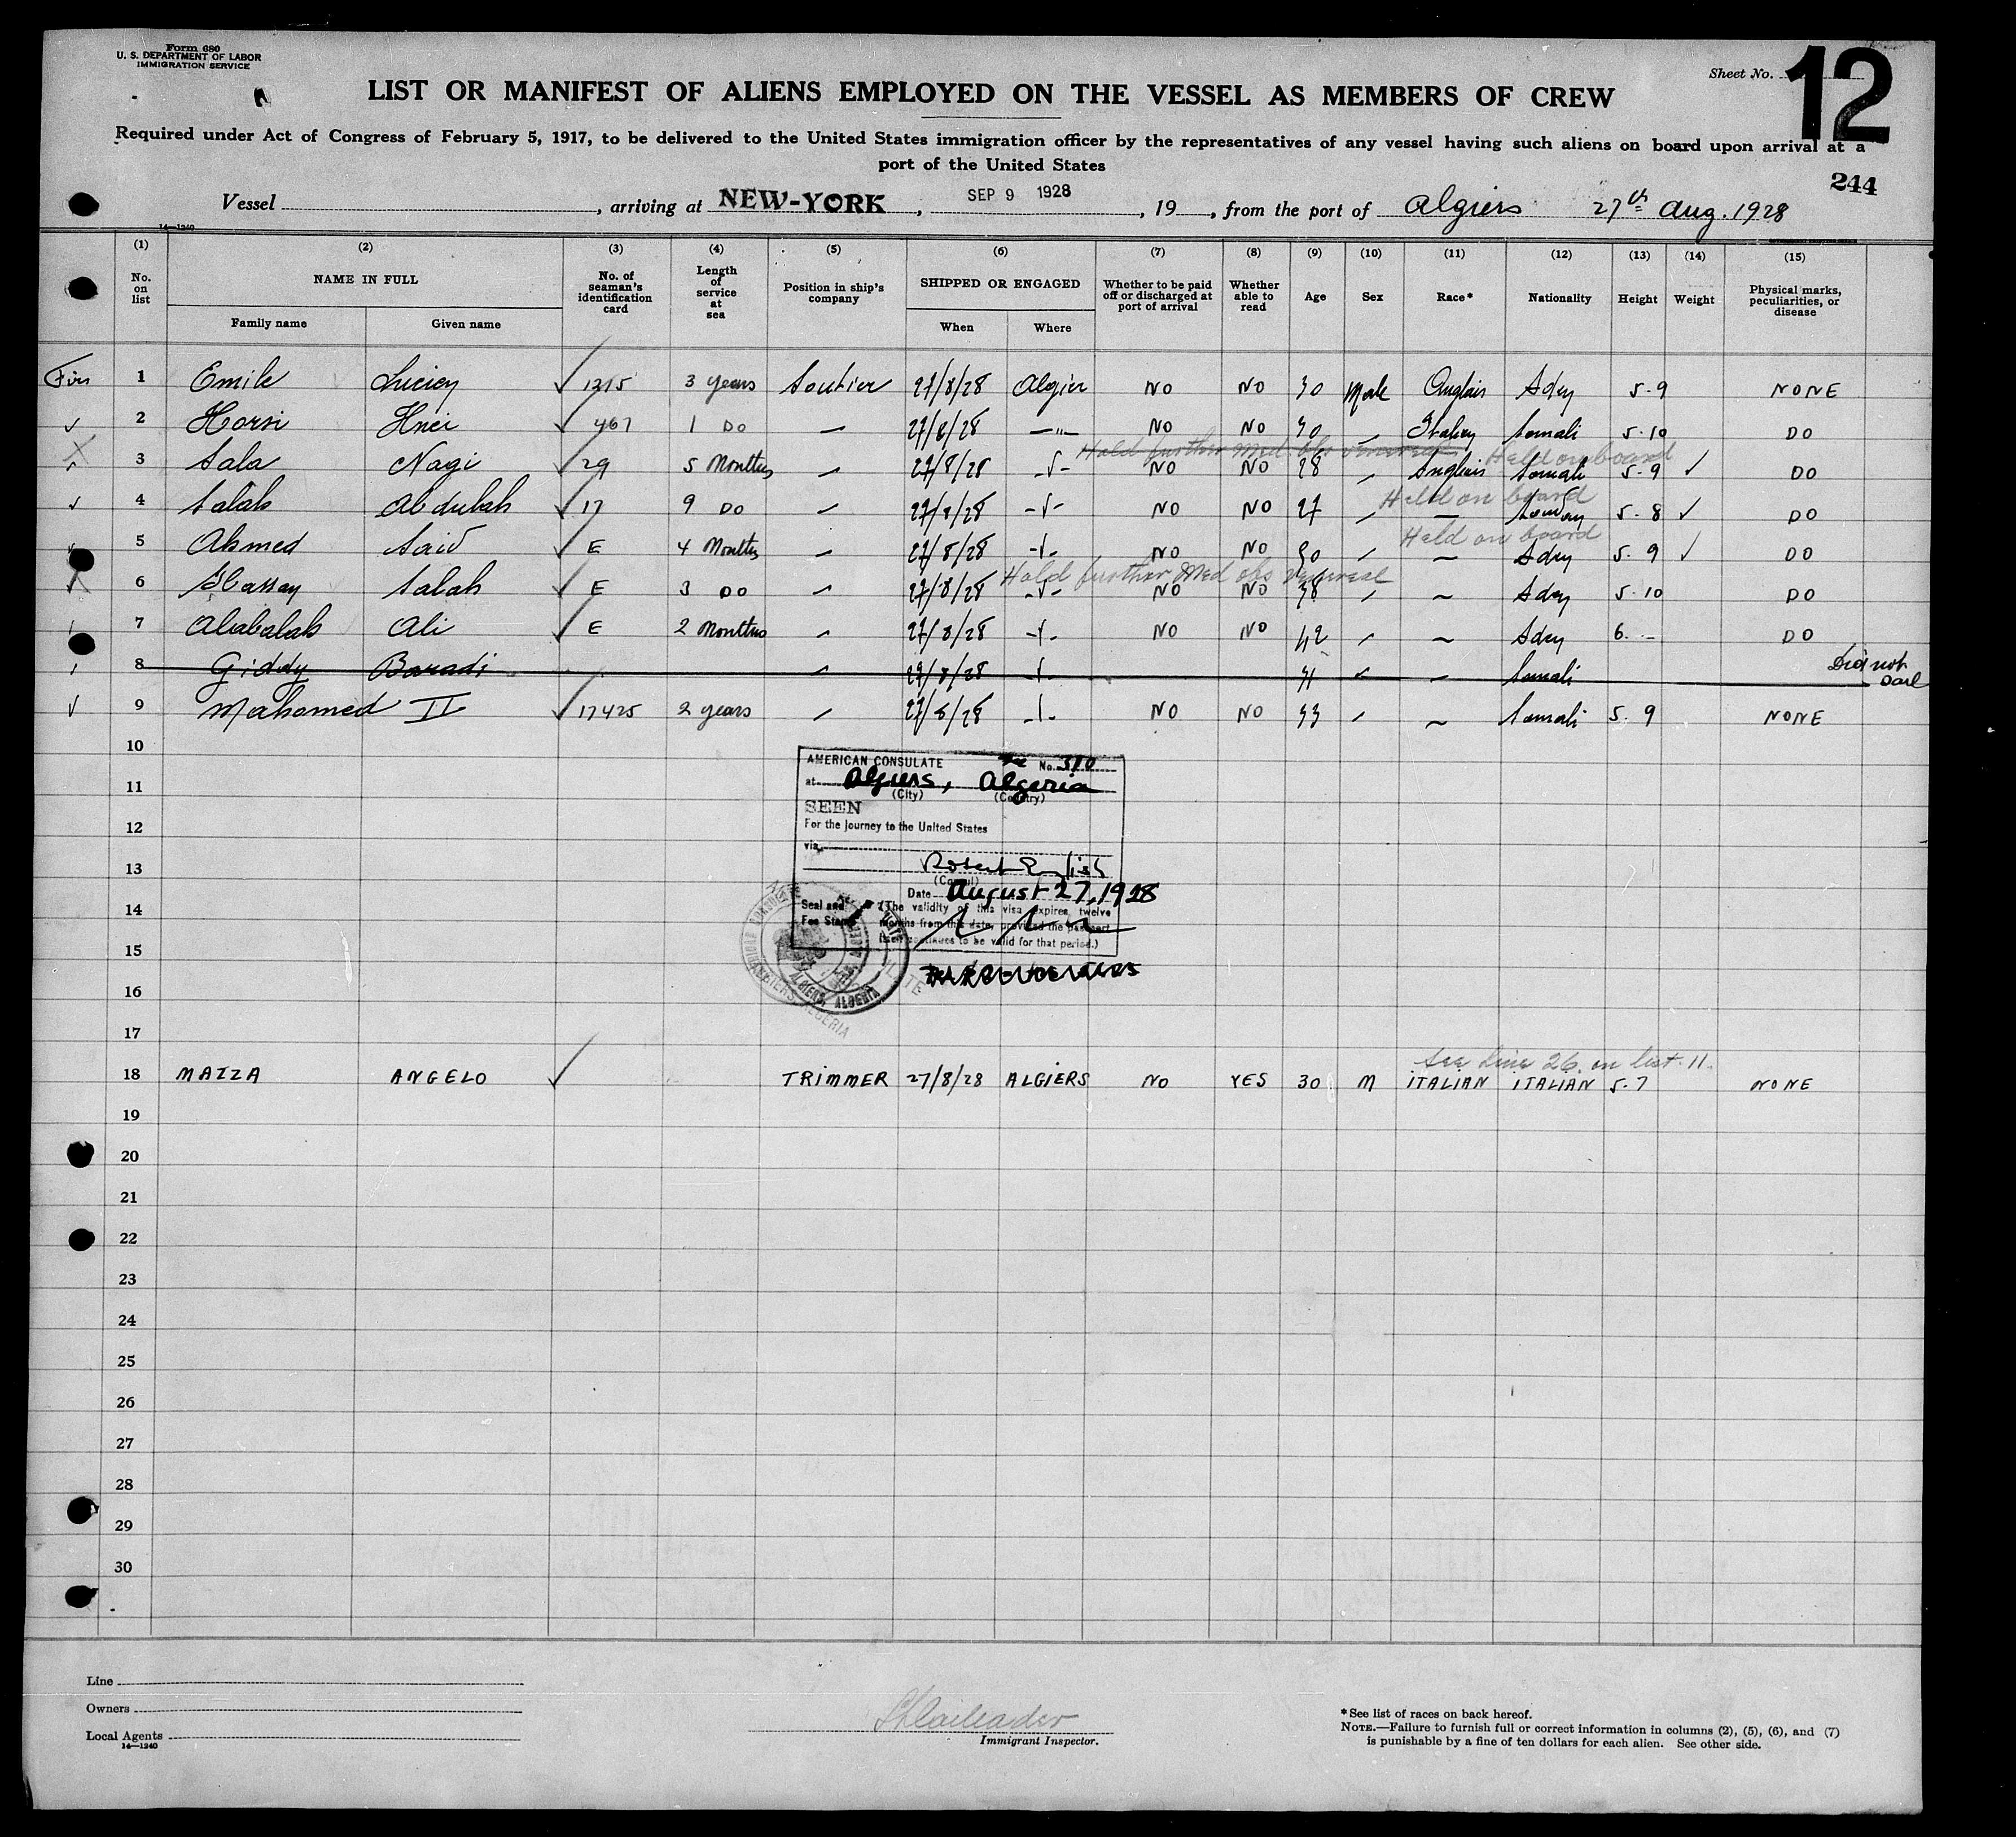 Form 680
U. S. DEPARTMENT OF LABOR
IMMIGRATION SERVICE
Sheet No. 12
LIST OR MANIFEST OF ALIENS EMPLOYED ON THE VESSEL AS MEMBERS OF CREW
Required under Act of Congress of February 5, 1917, to be delivered to the United States immigration officer by the representatives of any vessel having such aliens on board upon arrival at a
port of the United States
244
Vessel , arriving at NEW-YORK , SEP 9 1928 , 19 , from the port of Algiers 27th Aug. 1928
14—1240
(1) (2) (3) (4) (5) (6) (7) (8) (9) (10) (11) (12) (13) (14) (15)
No. on list NAME IN FULL No. of seaman's identification card Length of service at sea Position in ship's company SHIPPED OR ENGAGED Whether to be paid off or discharged at port of arrival Whether able to read Age Sex Race* Nationality Height Weight Physical marks, peculiarities, or disease
Family name Given name When Where
1 Emile Lucien ✓ 1315 3 years Soutier 27/8/28 Algier NO NO 30 Male Anglais Aden 5-9 NONE
✓ 2 Horsi Hnei ✓ 467 1 DO 27/8/28 —"— NO NO 30 Somali 5-10 DO
Hold further Med obs venereal Held on board
3 Sala Nagi ✓ 29 5 Months 27/8/28 NO NO 28 Anglais Somali 5-9 ✓ DO
Held on board
✓ 4 Salah Abdulah ✓ 17 9 DO 27/8/28 NO NO 27 5-8 ✓ DO
Held on board
5 Ahmed Said ✓ E 4 Months 27/8/28 NO NO 30 Aden 5-9 ✓ DO
Hold further Med obs venereal
6 Hassan Salah ✓ E 3 DO 27/8/28 NO NO 38 Aden 5-10 DO
7 Alabalah Ali ✓ E 2 Months 27/8/28 NO NO 42 Aden 6. - DO
8 Giddy Baradi 27/8/28 31 Somali Did not sail
✓ 9 Mahomed II ✓ 17425 2 years 27/8/28 NO NO 33 Somali 5. 9 NONE
10
11
12
13
14
15
16
17
AMERICAN CONSULATE No. 310
at Algiers, Algeria
(City) (Country)
SEEN
For the journey to the United States
via
Robert English
(Consul)
Date August 27, 1928
Seal and Fee Stamp
(The validity of this visa expires twelve
months from this date, provided the passport
itself continues to be valid for that period.)
ALGIERS, ALGERIA
See Line 26 on list 11.
18 MAZZA ANGELO ✓ TRIMMER 27/8/28 ALGIERS NO YES 30 M ITALIAN ITALIAN 5-7 NONE
19
20
21
22
23
24
25
26
27
28
29
30
Line
Owners
Local Agents
14—1240
Immigrant Inspector.
* See list of races on back hereof.
NOTE.—Failure to furnish full or correct information in columns (2), (5), (6), and (7)
is punishable by a fine of ten dollars for each alien. See other side.